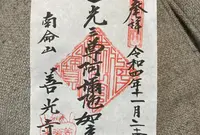 奉拝
令和四年一月二十
光三尊阿弥陀如来
南命山 善光寺